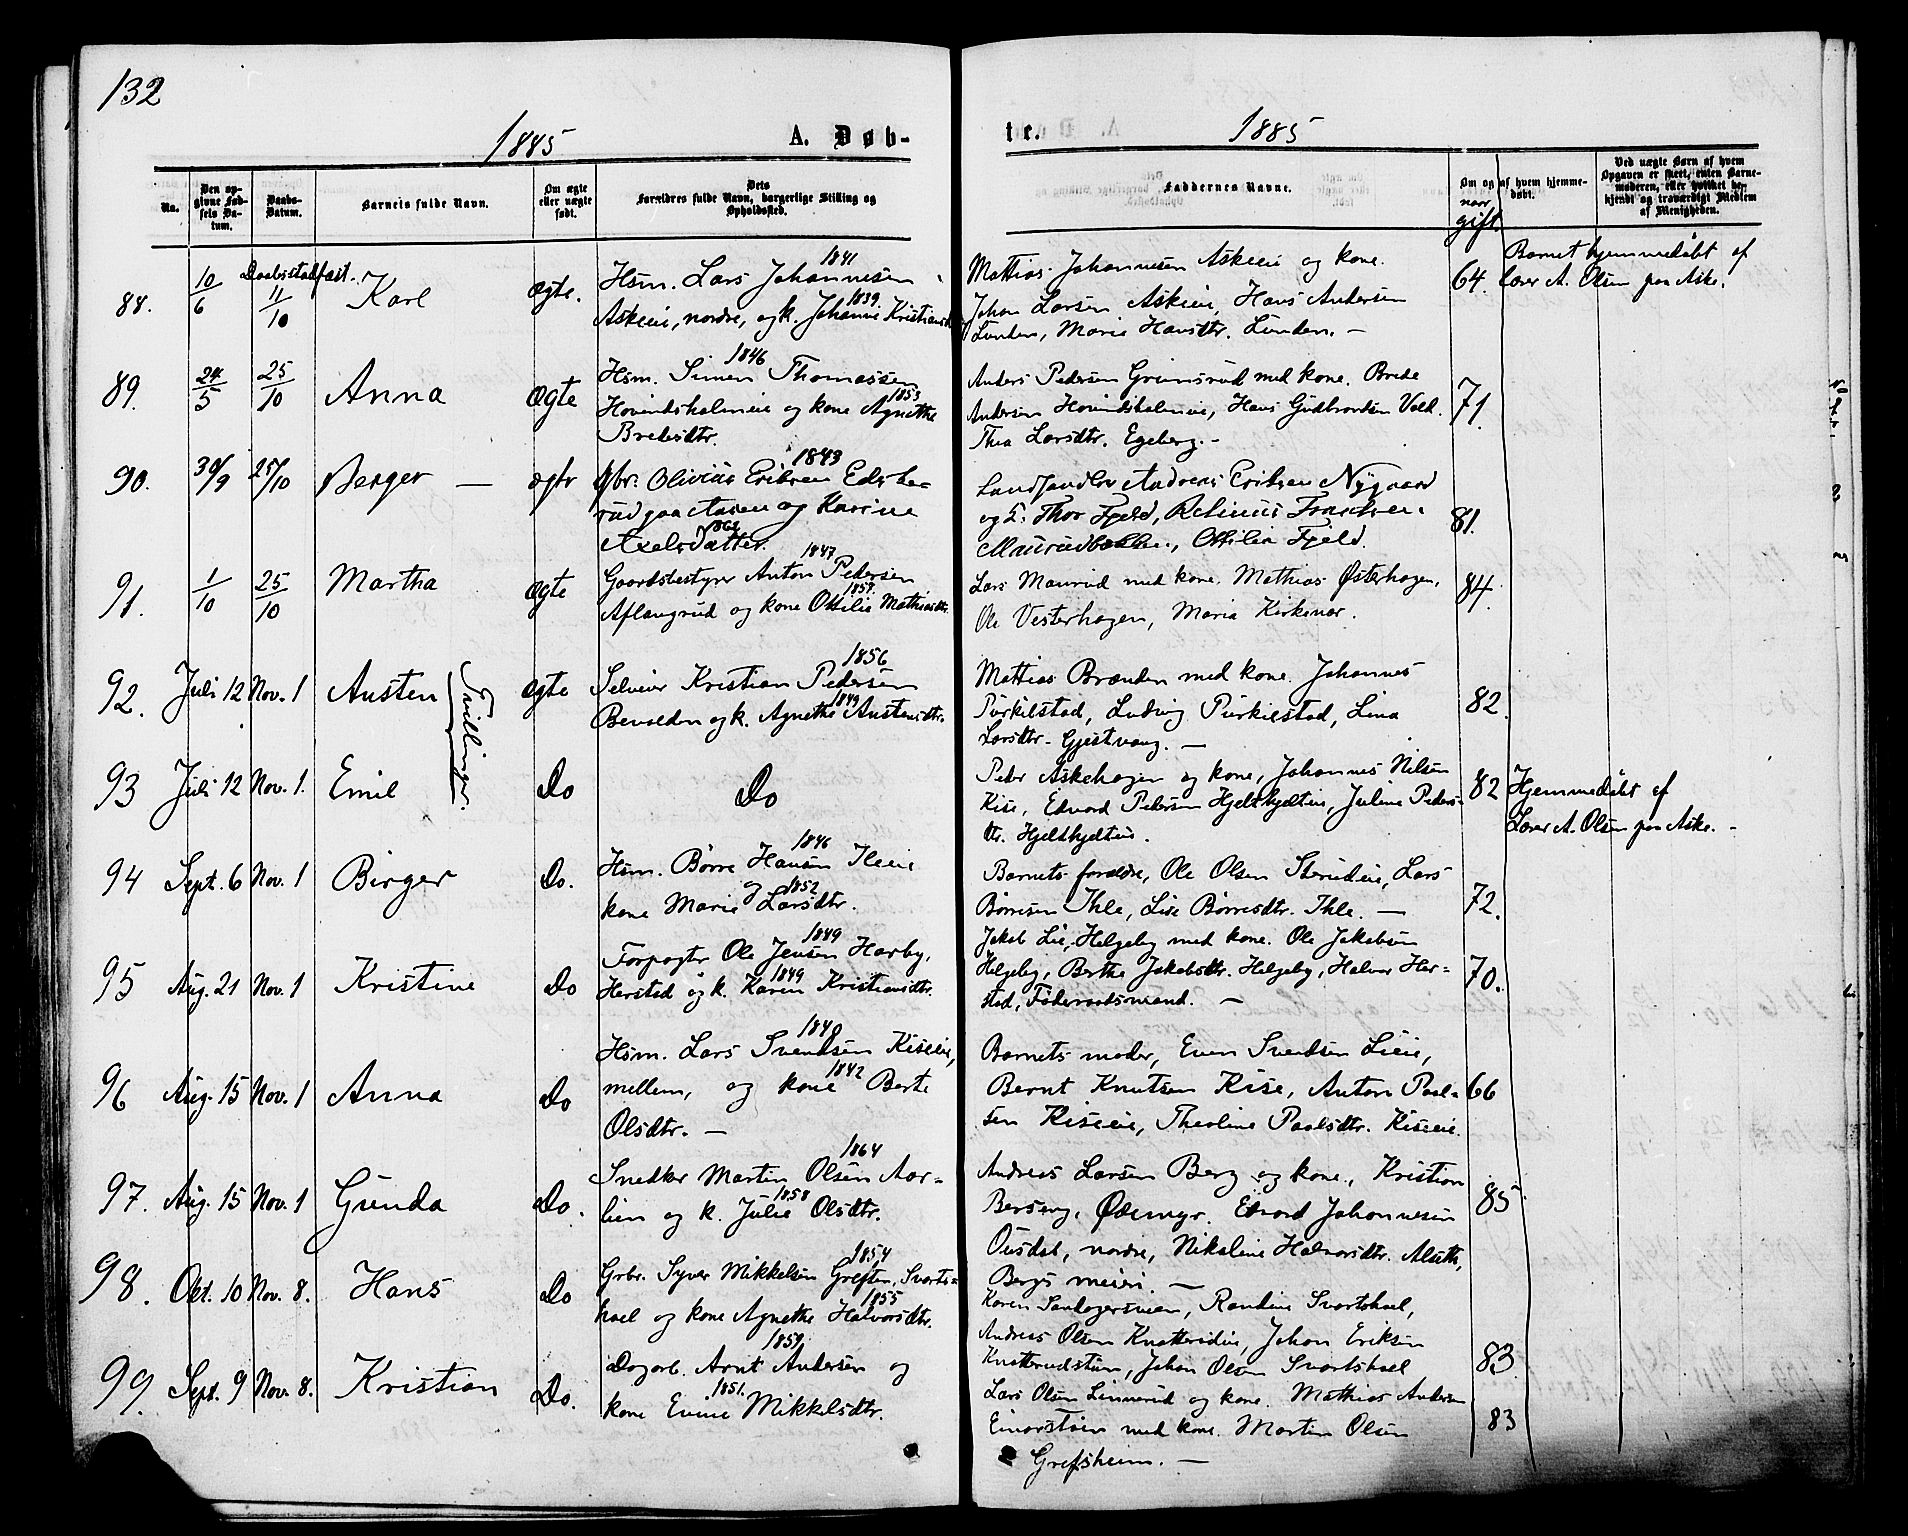 132
1885 A. Døb-
No. Den opgivne Fødsels Datum. Daabs-Datum. Barnets fulde Navn. Om ægte eller uægte født. Dets Forældres fulde Navn, borgerlige Stilling og Opholdssted.
88. 10/6 Daabsstadfæst. 11/10 Karl ægte. Hsm. Lars Johannesen 1841
Askeie, nordre, og k. Johanne Kristiansd. 1839.
89. 24/5 25/10 Anna ægte Hsm. Simen Thomassen 1846
Hovindsholmeie og kone Agnethe 1853
Bredesdtr.
90. 30/9 25/10 Berger — ægte Gbr. Olivius Eriksen 1843
og Karine
Axelsdatter.
91. 1/10 25/10 Martha ægte Gaardsbestyrer Anton Pedersen 1847
Aflangrud og kone Ottilie Mathiasdtr. 1859.
92. Juli 12 Nov. 1 Austen Tvillinger. ægte Selveier Kristian Pedersen 1856
og k. Agnethe Austensdtr. 1849
93 Juli 12 Nov. 1. Emil Do Do
94 Sept. 6 Nov. 1 Birger Do. Hsm. Børre Hansen Ileie 1846
og kone Marie Larsdtr. 1852
95 Aug. 21 Nov. 1 Kristine Do Forpagter Ole Jensen Harby, 1849
Herstad og k. Karen Kristiansdtr. 1849
96 Aug. 15 Nov. 1 Anna Do Hsm. Lars Svendsen Kiseeie, 1840
mellem, og kone Berte 1842
Olsdtr. —
97. Aug. 15 Nov. 1 Gunda Do. Snedker Martin Olsen Aar- 1864
lien og k. Julie Olsdtr. 1858
98. Okt. 10 Nov. 8. Hans Do Grbr. Syver Mikkelsen Greften, Svarts- 1854
hoel og kone Agnethe Halvorsdtr. 1855
99. Sept. 9 Nov. 8. Kristian Do. Dagarb. Arnt Andersen og 1859.
kone Evine Mikkelsdtr. 1851.
te. 1885
Faddernes Navne. Om og af hvem hjemmedøbt. naar gift. Ved uægte Børn af hvem Opgaven er skeet, enten Barnemoderen, eller hvilket bekjendt og troværdigt Medlem af Menigheden.
Mathias Johannesen Askeie og kone. Barnet hjemmedøbt af
Johan Larsen Askeie, Hans Andersen 64. lærer A. Olsen paa Aske.
Lunden, Marie Hansdtr. Lunden. —
Anders Pedersen Grimsrud med kone. Brede
Andersen Hovindsholmeie, Hans Gudbrandsen Vold. 71.
Thea Larsdtr. Egeberg. —
Landhandler Andreas Eriksen Nygaard
og k. Thor Fjeld, 81.
Ottilia Fjeld.
Lars Maurud med kone. Mathias Østerhagen, 84.
Ole Vesterhagen, Maria Kirkenær.
Mathias Brænden med kone. Johannes
Purkilstad, Ludvig Purkilstad, Lina 82.
Larsdtr. Gjestvang. —
Peder Askehagen og kone, Johannes Nilsen 82 Hjemmedøbt af
Kise, Edvard Pedersen Hjelsbydteie, Juline Peders-
dtr. Hjelsbydteie. Lærer A. Olsen paa Aske. —
Barnets forældre, Ole Olsen Sterudeie, Lars
Børresen Ihle, Lise Børresdtr. Ihle. — 72.
Jakob Lie, Helgeby med kone. Ole Jakobsen
Helgeby, Berthe Jakobsdtr. Helgeby, Halvor Her- 70.
stad, Føderaadsmand. —
Barnets moder, Even Svendsen Lieie,
Bernt Knutsen Kise, Anton Paal- 66
sen Kiseeie, Theoline Paalsdtr. Kiseeie.
Andreas Larsen Berg og kone, Kristian
Berseng, Ødemyr. Edvard Johannesen 85
Ousdal, nordre, Nikoline Halvorsdtr. Alseth,
Bergs meieri. —
Karen Sandagersveen, Randine Svartshoel,
Andreas Olsen Knatterudeie, Johan Eriksen
Knatterudstuen, Johan Olsen Svartshoel 83.
Lars Olsen Linnerud og kone. Mathias Andersen
Einarstøien med kone. Martin Olsen 83
Grefsheim. —